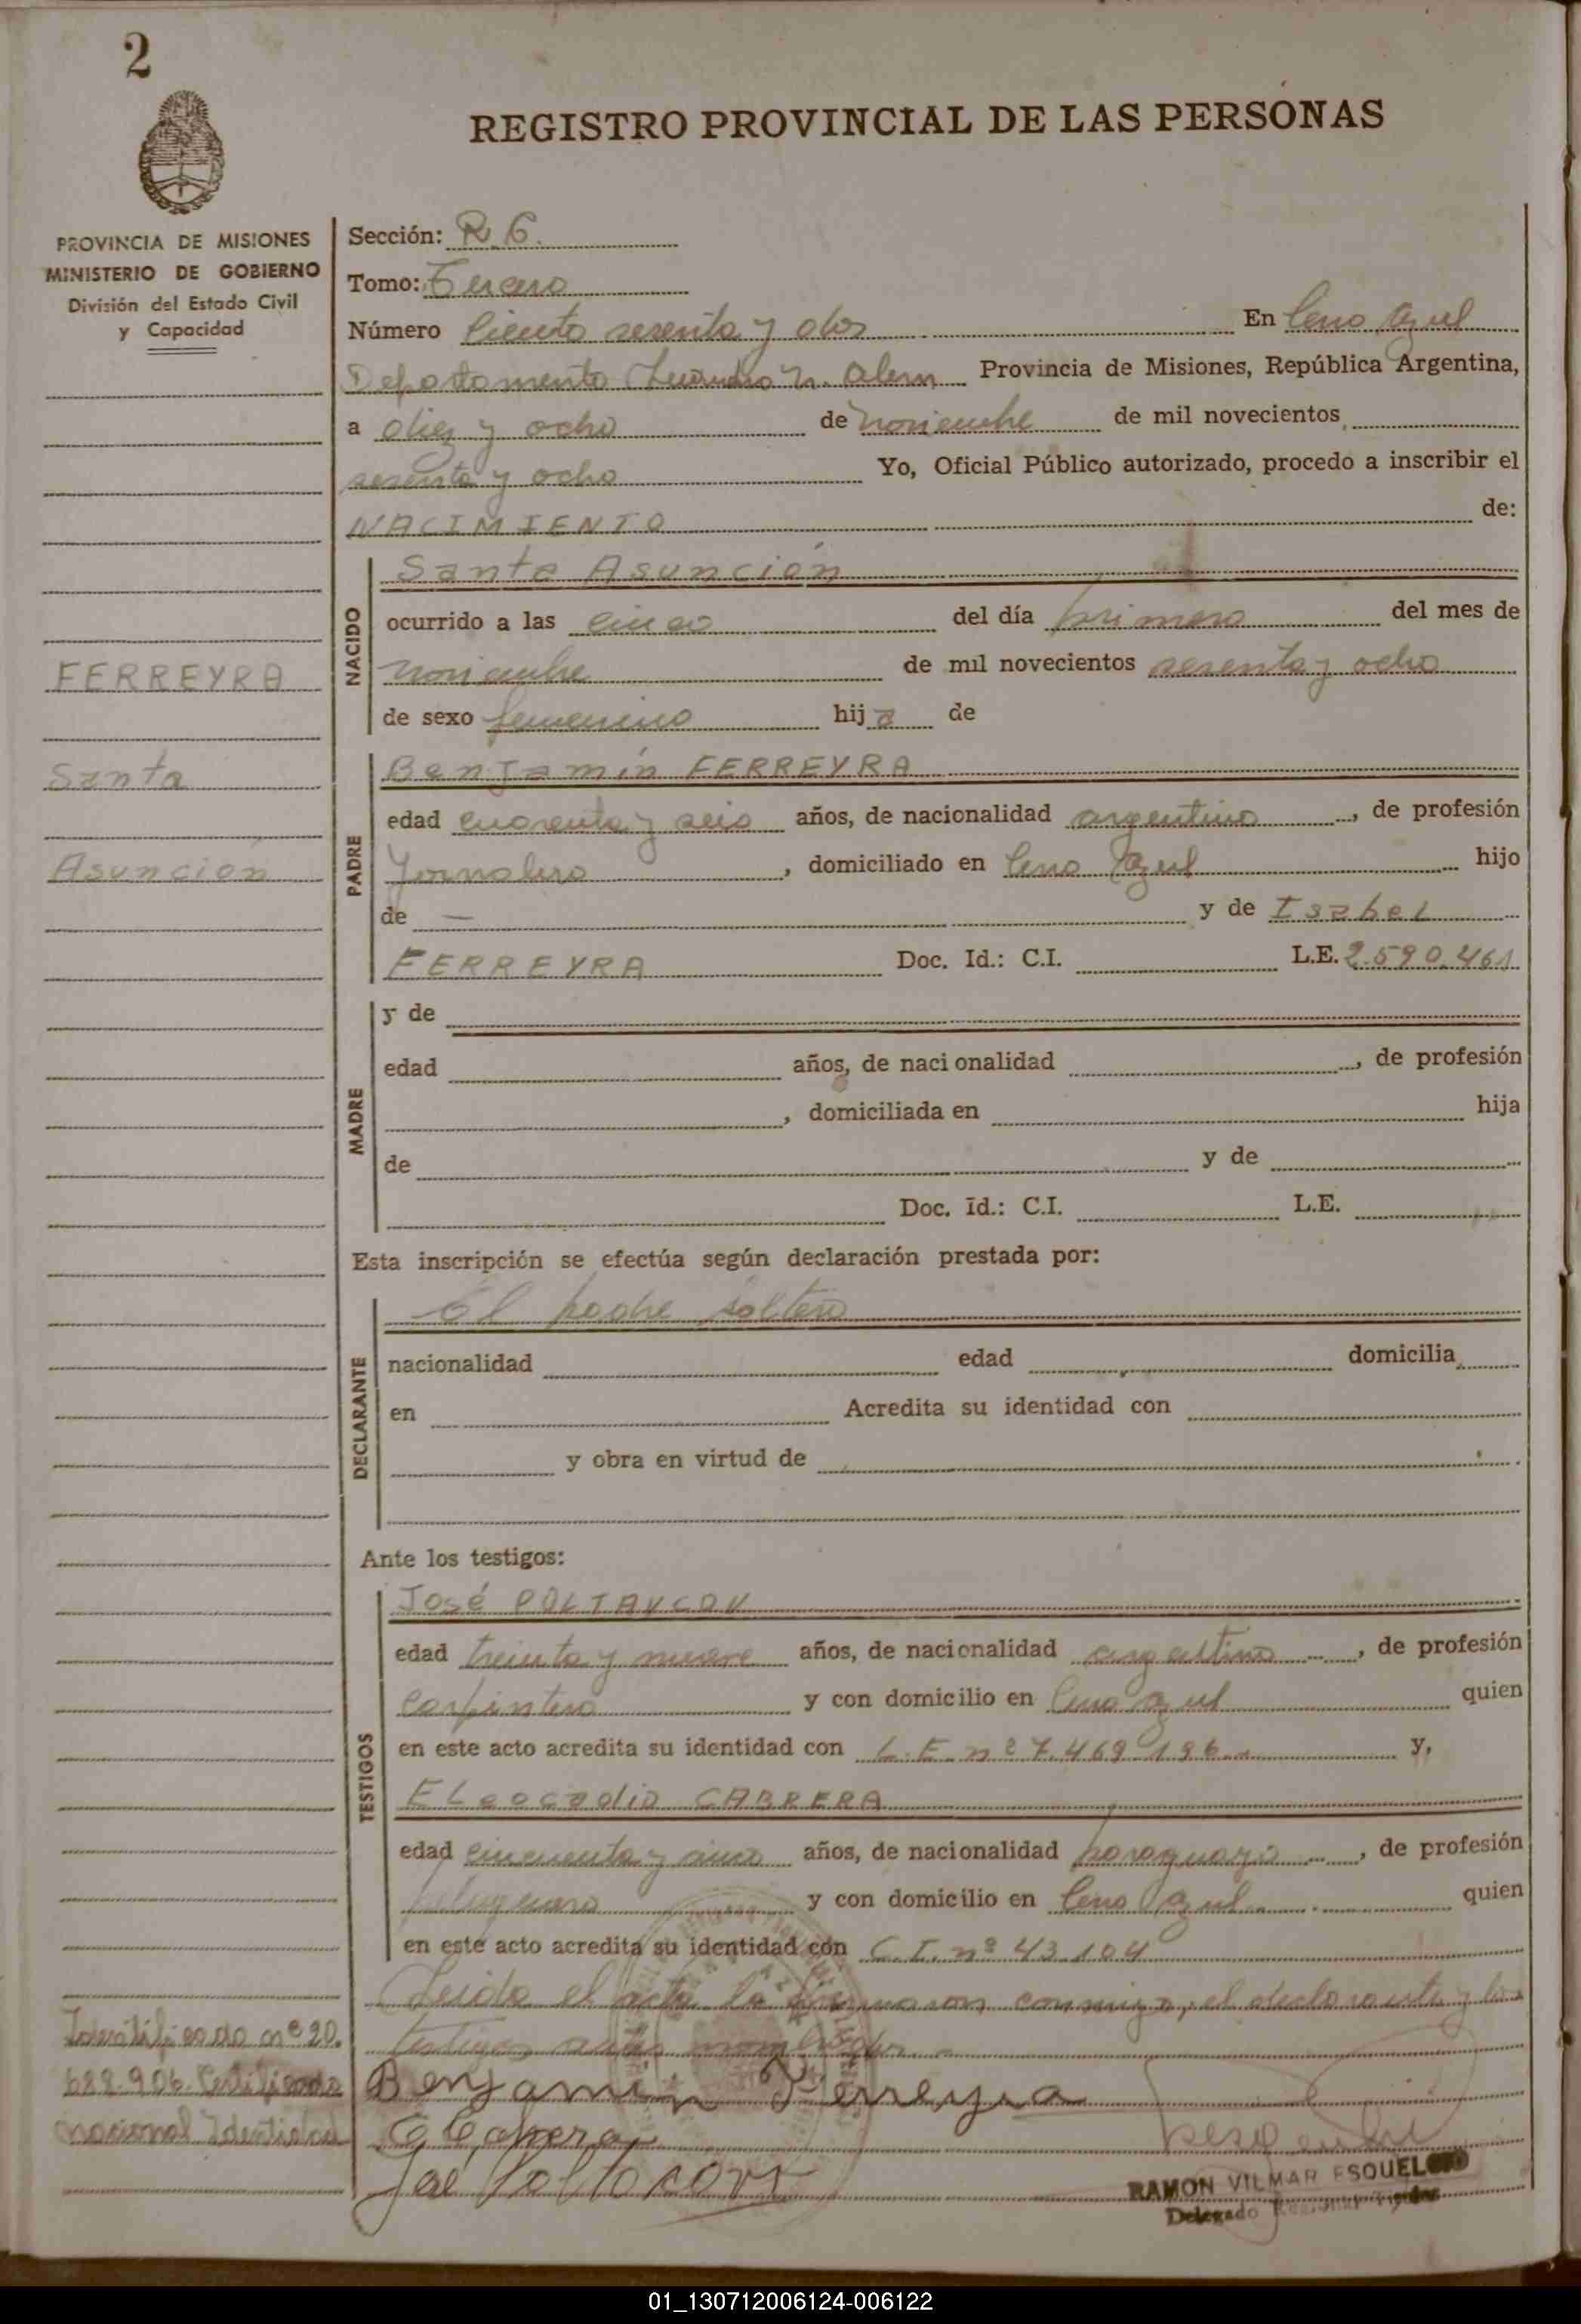 2
REGISTRO PROVINCIAL DE LAS PERSONAS
PROVINCIA DE MISIONES
MINISTERIO DE GOBIERNO
División del Estado Civil
y Capacidad
FERREYRA
Santa
Asunción
Identificado nº 20.
688.906. Certificado
nacional Identidad
Sección: R. 6.
Tomo: Tercero
Número Ciento sesenta y dos En Cerro Azul
Departamento Leandro N. Alem Provincia de Misiones, República Argentina,
a diez y ocho de noviembre de mil novecientos
sesenta y ocho Yo, Oficial Público autorizado, procedo a inscribir el
NACIMIENTO de:
NACIDO
Santa Asunción
ocurrido a las cinco del día primero del mes de
noviembre de mil novecientos sesenta y ocho
de sexo femenino hija de
PADRE
Benjamín FERREYRA
edad cuarenta y seis años, de nacionalidad argentino, de profesión
Jornalero, domiciliado en Cerro Azul hijo
de — y de Isabel
FERREYRA Doc. Id.: C.I. L.E. 2.590.461
MADRE
y de
edad años, de nacionalidad , de profesión
, domiciliada en hija
de y de
Doc. Id.: C.I. L.E.
Esta inscripción se efectúa según declaración prestada por:
DECLARANTE
El padre soltero
nacionalidad edad domicilia
en Acredita su identidad con
y obra en virtud de
Ante los testigos:
TESTIGOS
José POLTAVCOV
edad treinta y nueve años, de nacionalidad argentino, de profesión
carpintero y con domicilio en Cerro Azul quien
en este acto acredita su identidad con L.E. nº 7.469.196 y,
ELeocadio CABRERA
edad cincuenta y cinco años, de nacionalidad paraguayo, de profesión
peluquero y con domicilio en Cerro Azul quien
en este acto acredita su identidad con C.I. nº 43.104
Leida el acta la firmaron conmigo, el declarante y los
testigos antes nombrados
Benjamin Ferreyra
RAMON VILMAR ESQUEL
Delegado
01_130712006124-006122